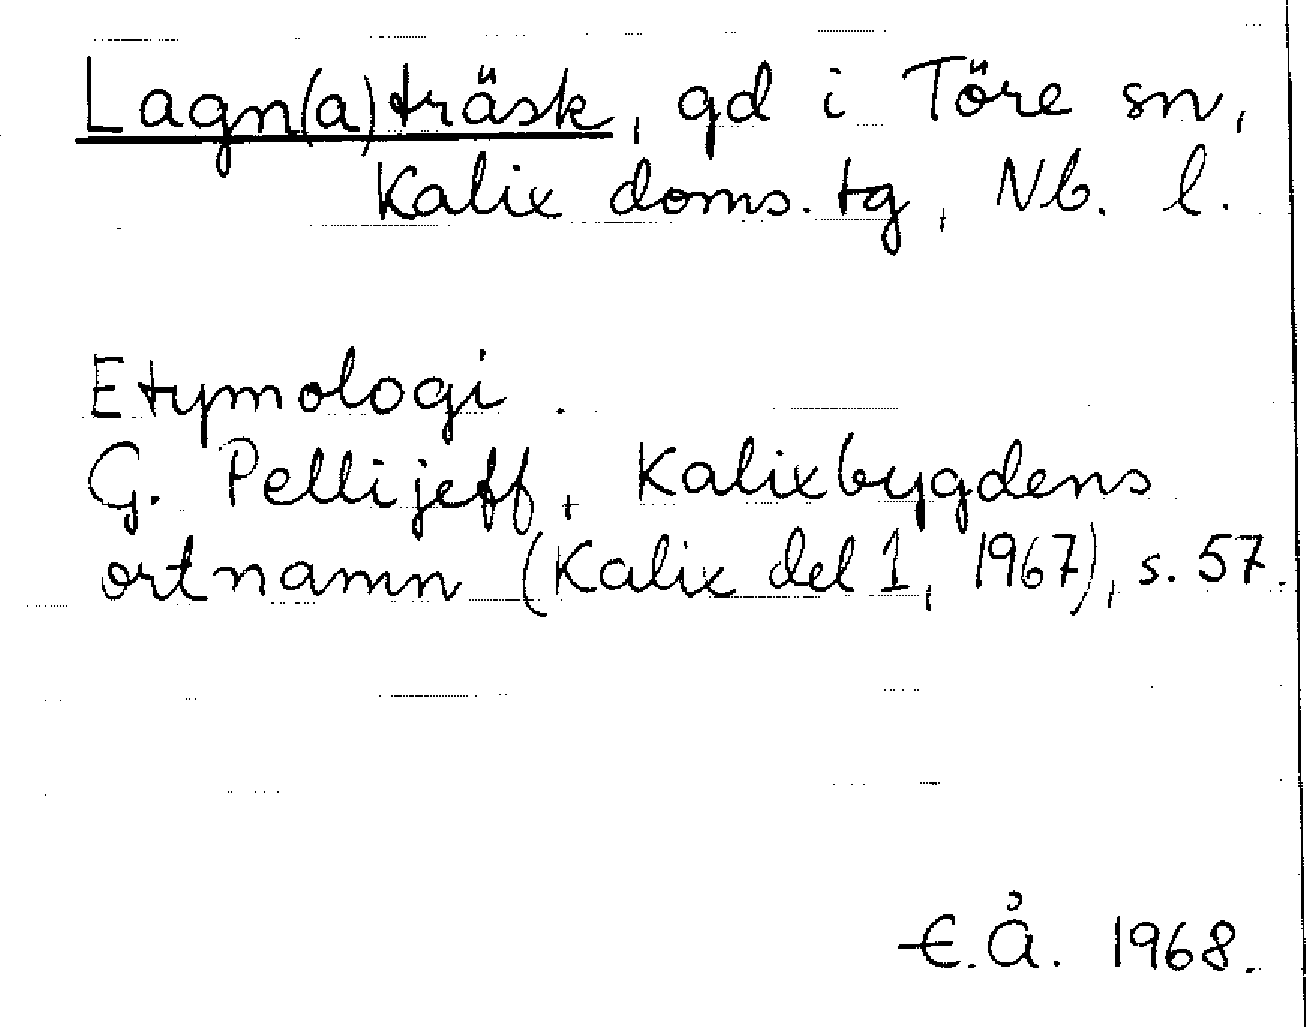 Lagn(a)träsk, gd i Töre sn,
Kalix doms. tg, Nb. l.
Etymologi.
G. Pellijeff, Kalixbygdens
ortnamn (Kalix del 1, 1967), s. 57.
E.Å. 1968.